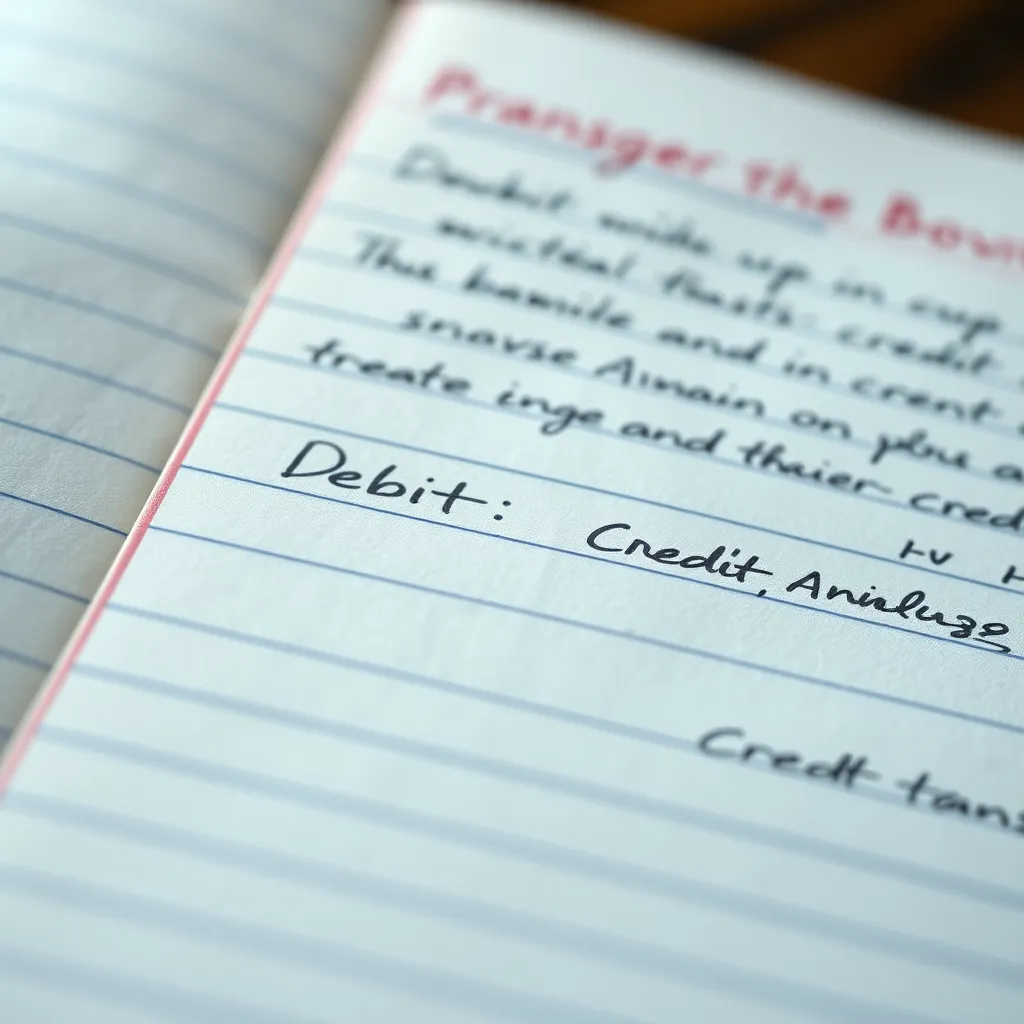 Pransger the Bovi
Doubit wide up in cup
wicteal thasts: credit
The bamile and in crent
snavse Aimain on plus a
treate inge and thaier cred
Debit: Credit,
Credt tans